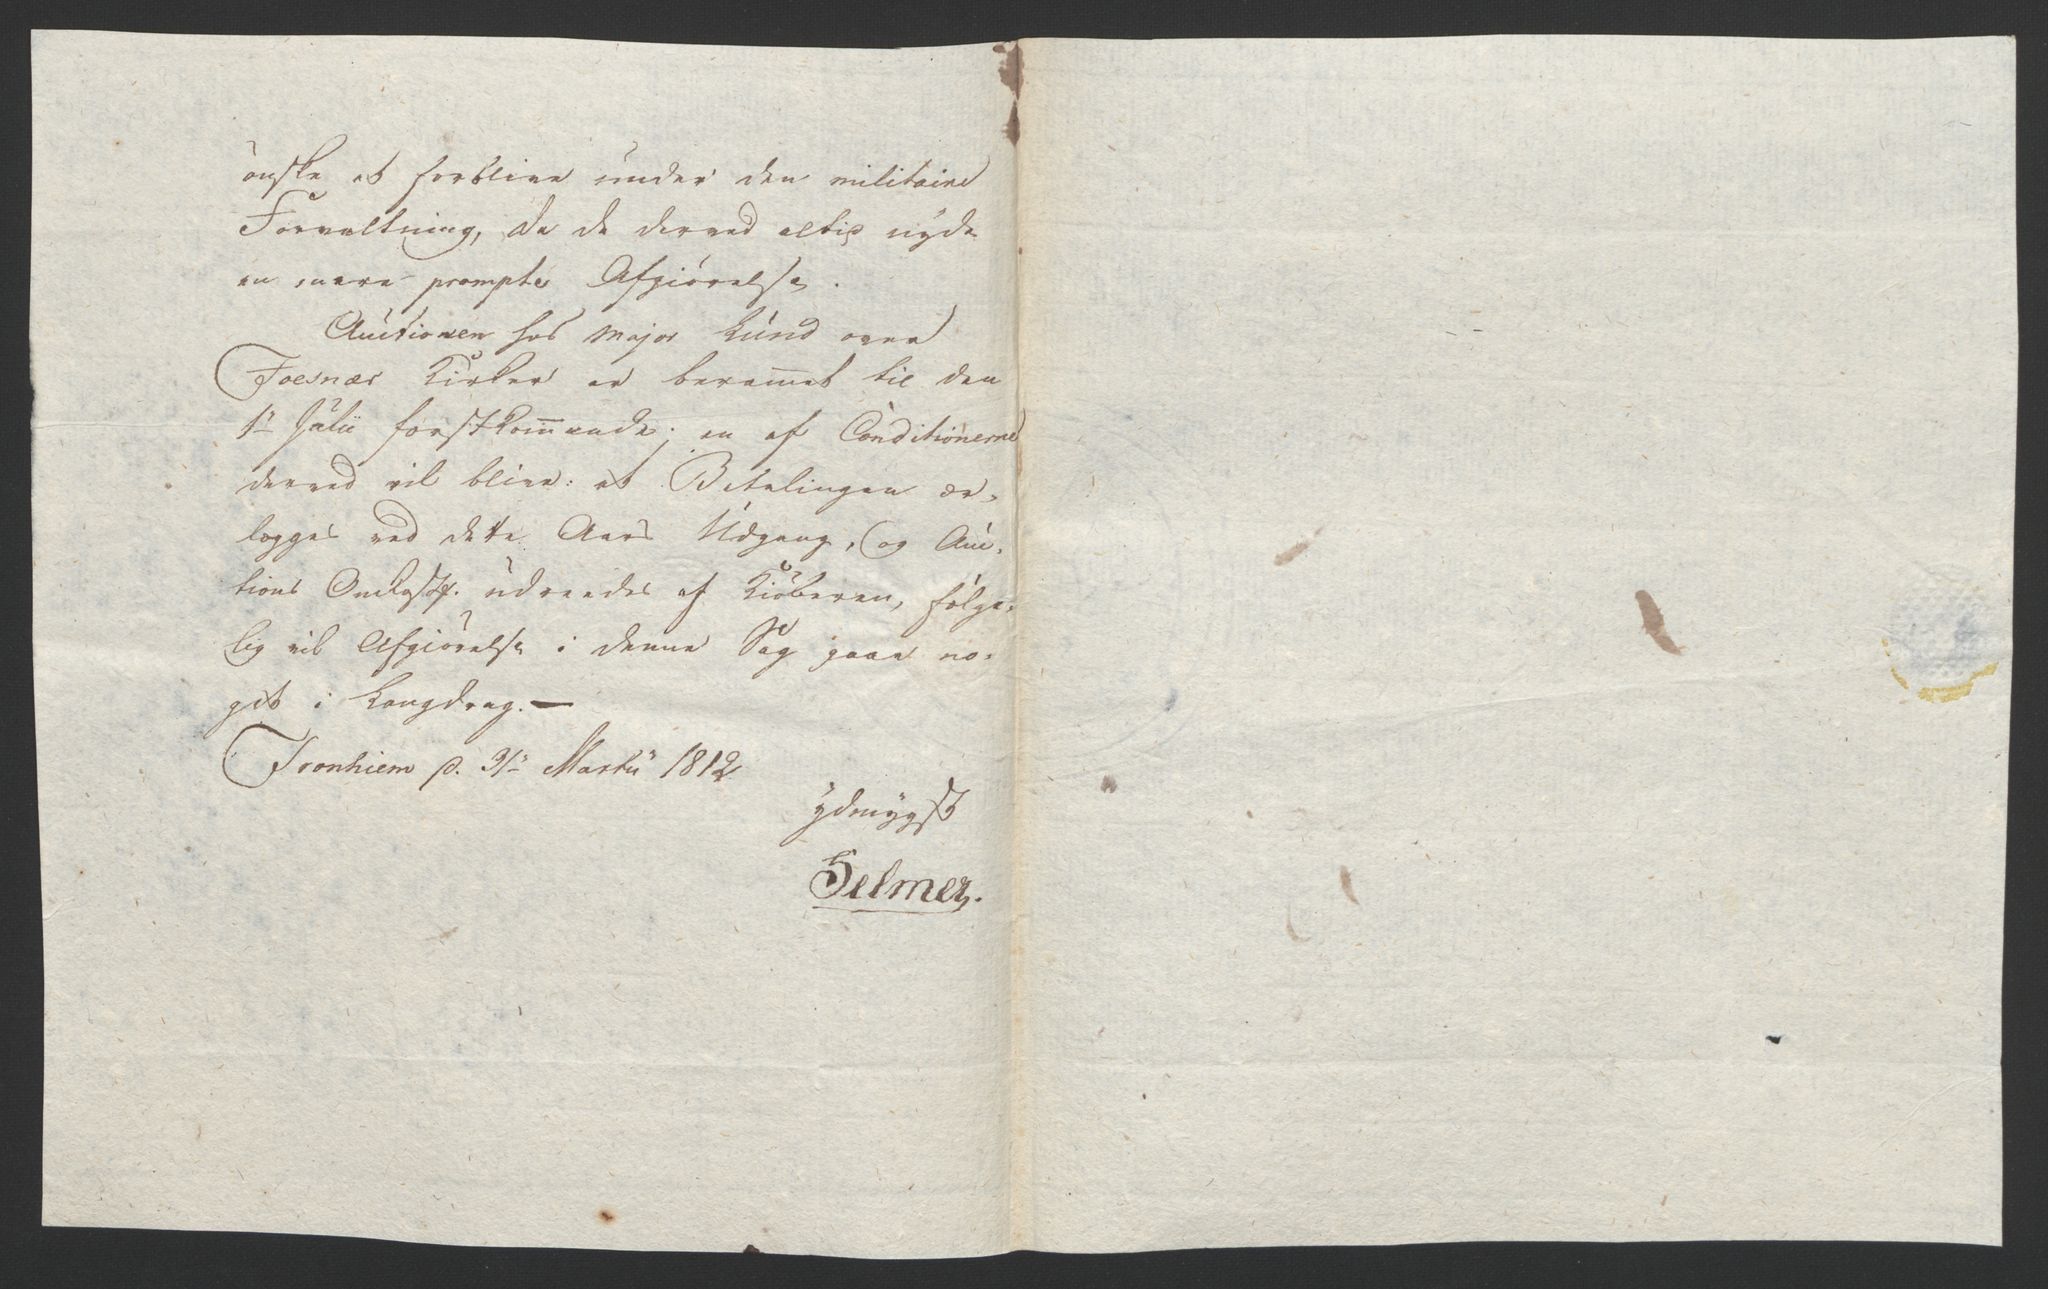 ønske at forblive under den militaire
Forvaltning, da de derved altid nyde
en mere prompte Afgiørelse.
Auctionen hos Major Lund over
Foesnæs Kirker er berammet til den
1ste Julii førstkommende; en af Conditionerne
derved vil blive: at Betalingen er-
lægges ved dette Aars Udgang, og Auc-
tions Omkostn. udreedes af Kiøberen, følge-
lig vil Afgiørelse i denne Sag gaae no-
get i Langdrag. —
Tronhiem d. 31te Martii 1812
ydmygst
Selmer.